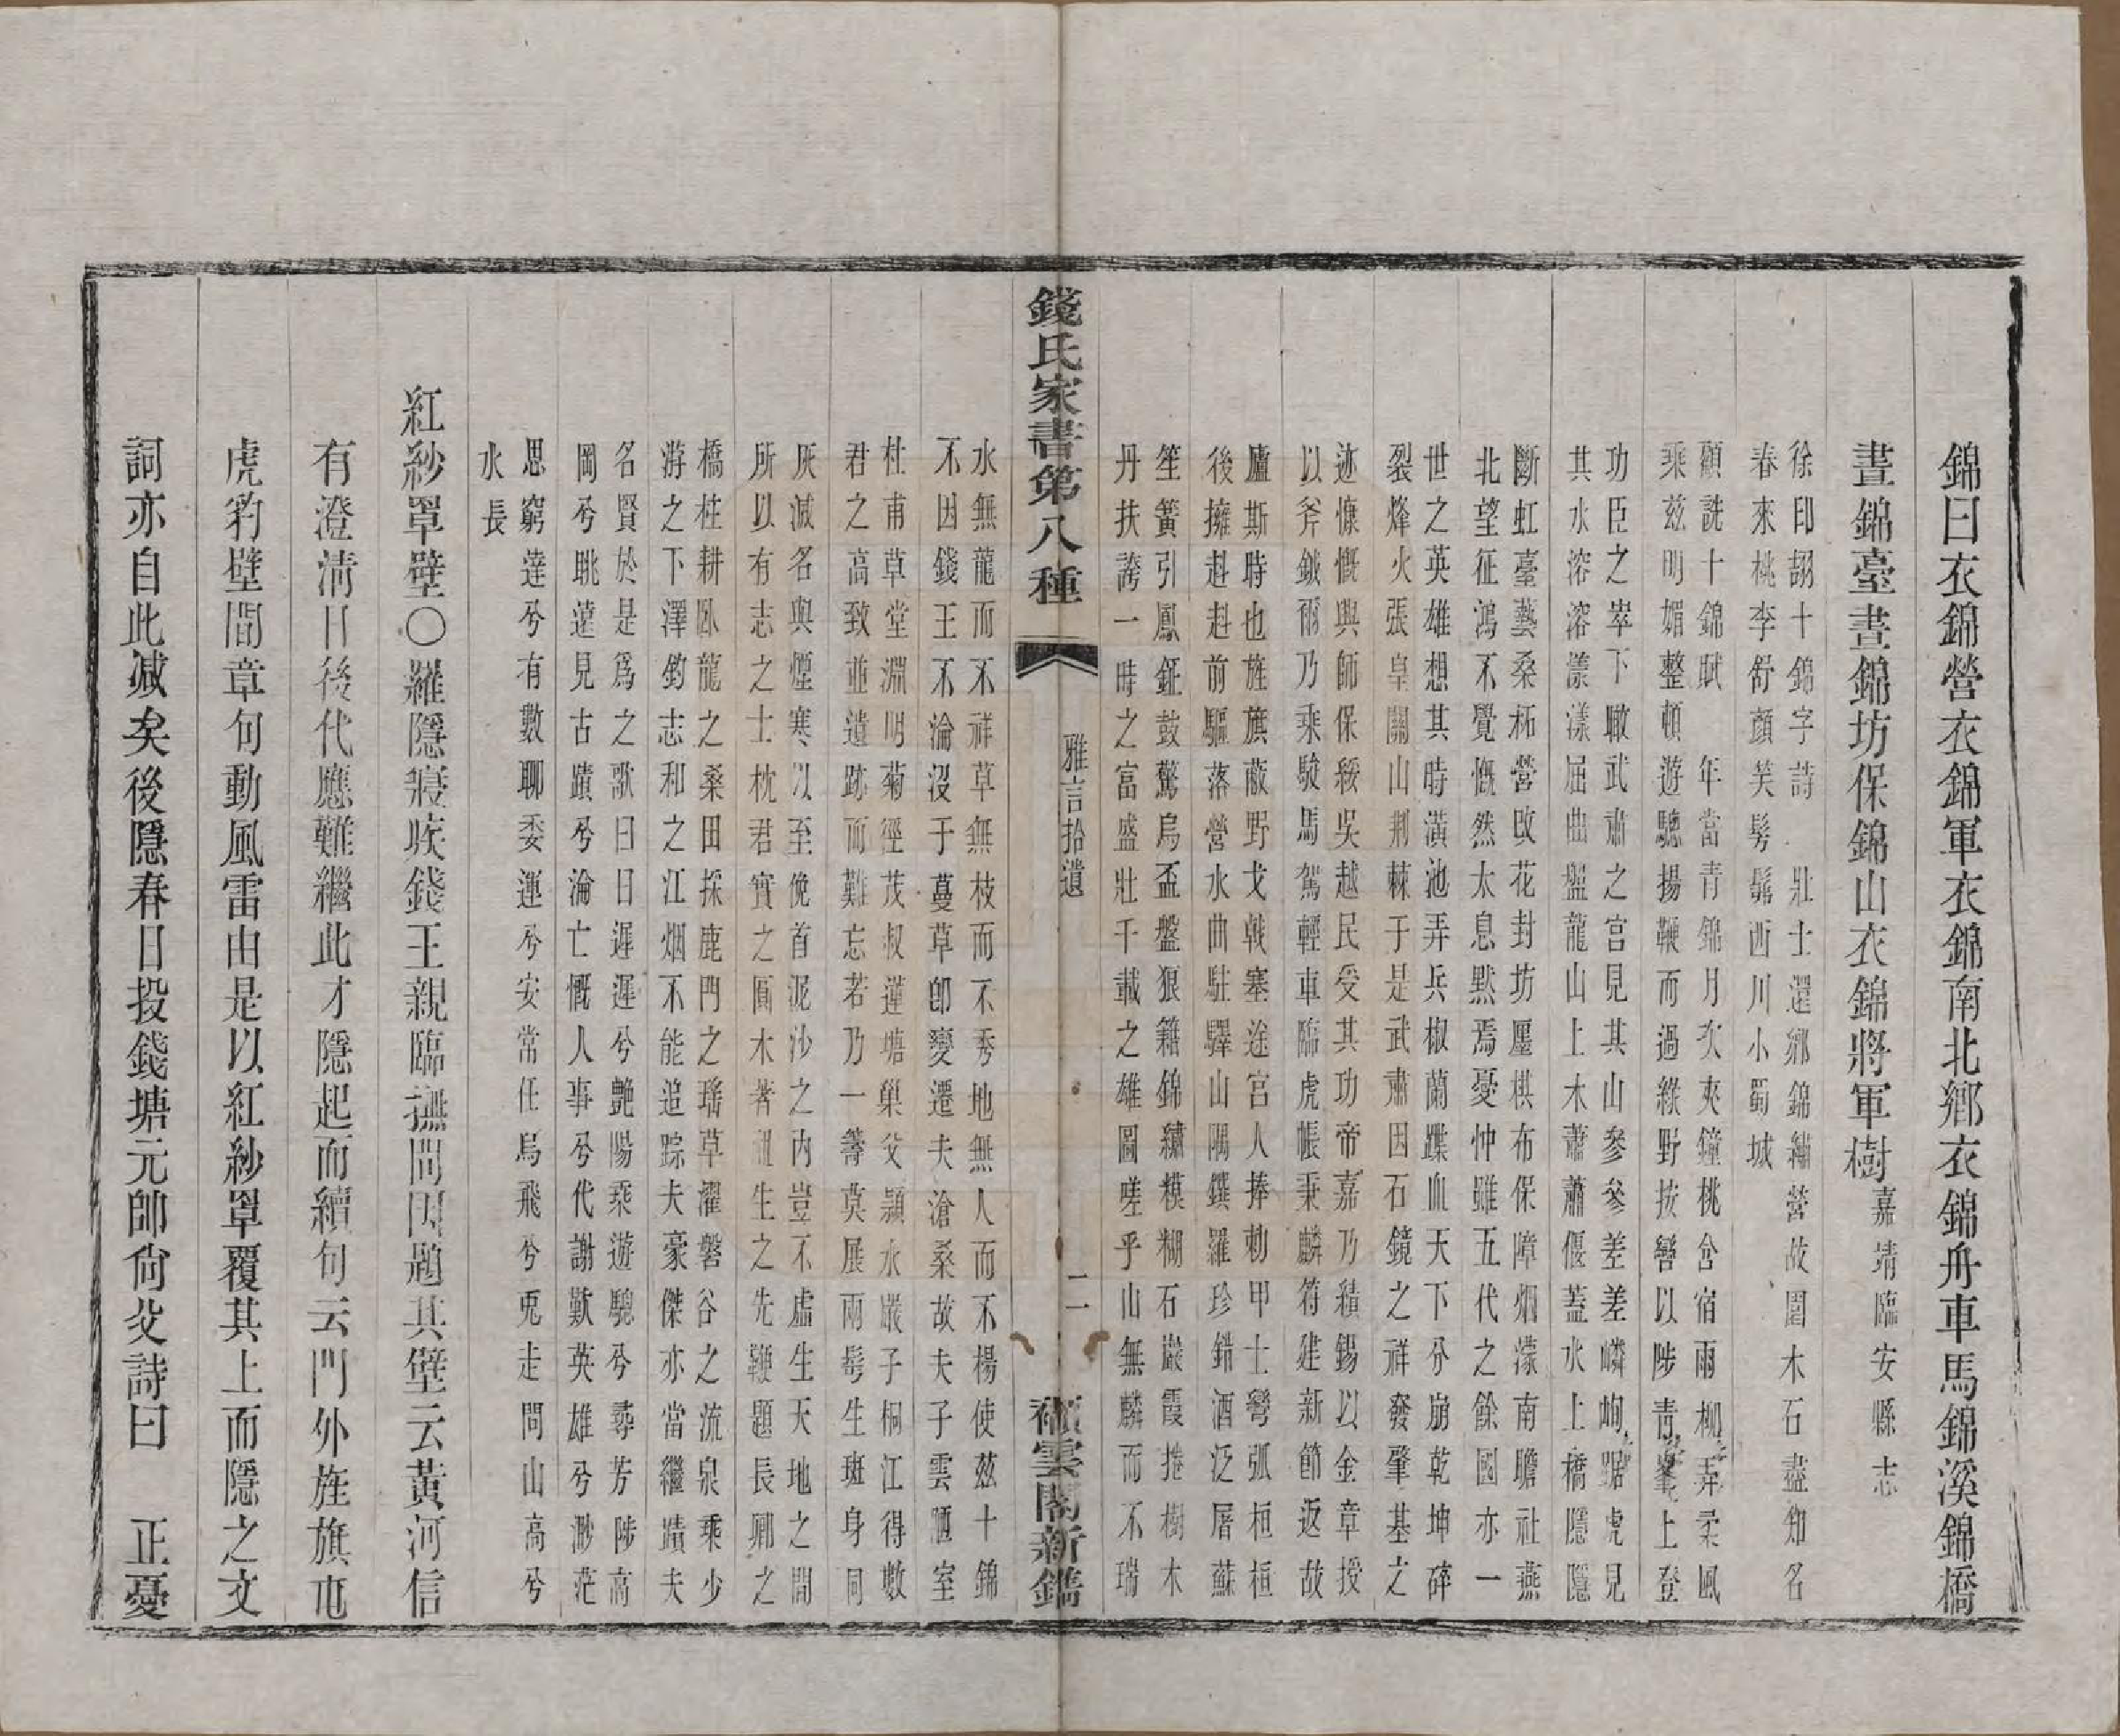 錦曰衣錦營衣錦軍衣錦南北鄉衣錦舟車馬錦溪錦橋
晝錦臺晝錦坊保錦山衣錦將軍樹嘉靖臨安縣志
徐印詡十錦字詩 壯士還鄉錦繡營故閭木石盡知名
春來桃李舒顏笑髣髴西川小蜀城
顧詵十錦賦 年當青錦月次夾鐘桃含宿雨柳弄柔風
乘茲明媚整頓遊驄揚鞭而過綠野按轡以陟青峯上登
功臣之崒下瞰武肅之宮見其山參參差差嶙峋踞虎見
其水溶溶漾漾屈曲盤龍山上木蕭蕭偃蓋水上橋隱隱
斷虹臺藝桑柘營改花封坊廛棋布保障烟濛南瞻社燕
北望征鴻不覺慨然太息黙焉憂忡雖五代之餘國亦一
世之英雄想其時潢池弄兵椒蘭蹀血天下分崩乾坤碎
裂烽火張皇關山荆棘于是武肅因石鏡之祥發肇基之
迹慷慨興師保綏吳越民受其功帝嘉乃績錫以金章授
以斧鉞爾乃乘駿馬駕輕車臨虎帳秉麟符建新節返故
廬斯時也旌旗蔽野戈戟塞途宮人捧勅甲士彎弧桓桓
後擁赳赳前驅落營水曲駐驛山隅饌羅珍錯酒泛屠蘇
笙簧引鳳鉦鼓驚烏盃盤狼籍錦繡模糊石巖霞捲樹木
丹扶誇一時之富盛壯千載之雄圖嗟乎山無麟而不瑞
錢氏家書第八種
雅言拾遺
二
雲閣新鐫
水無龍而不祥草無枝而不秀地無人而不楊使茲十錦
不因錢王不淪沒于蔓草卽變遷夫滄桑故夫子雲陋室
杜甫草堂淵明菊徑茂叔蓮塘巢父潁水嚴子桐江得數
君之高致並遺跡而難忘若乃一籌莫展兩髩生斑身同
灰滅名與煙寒以至俛首泥沙之內豈不虛生天地之間
所以有志之士枕君實之圓木著祖生之先鞭題長卿之
橋柱耕臥龍之桑田採鹿門之瑤草濯磐谷之流泉乘少
游之下澤鈞志和之江烟不能追踪夫豪傑亦當繼蹟夫
名賢於是爲之歌曰日遲遲兮艶陽乘遊驄兮尋芳陟高
岡兮眺遠見古蹟兮淪亡慨人事兮代謝歎英雄兮渺茫
思窮達兮有數聊委運兮安常任烏飛兮兎走問山高兮
水長
紅紗罩壁〇羅隱寢疾錢王親臨撫問因題其壁云黃河信
有澄清日後代應難繼此才隱起而續句云門外旌旗屯
虎豹壁間章句動風雷由是以紅紗罩覆其上而隱之文
詞亦自此減矣後隱春日投錢塘元帥尙父詩曰 正憂